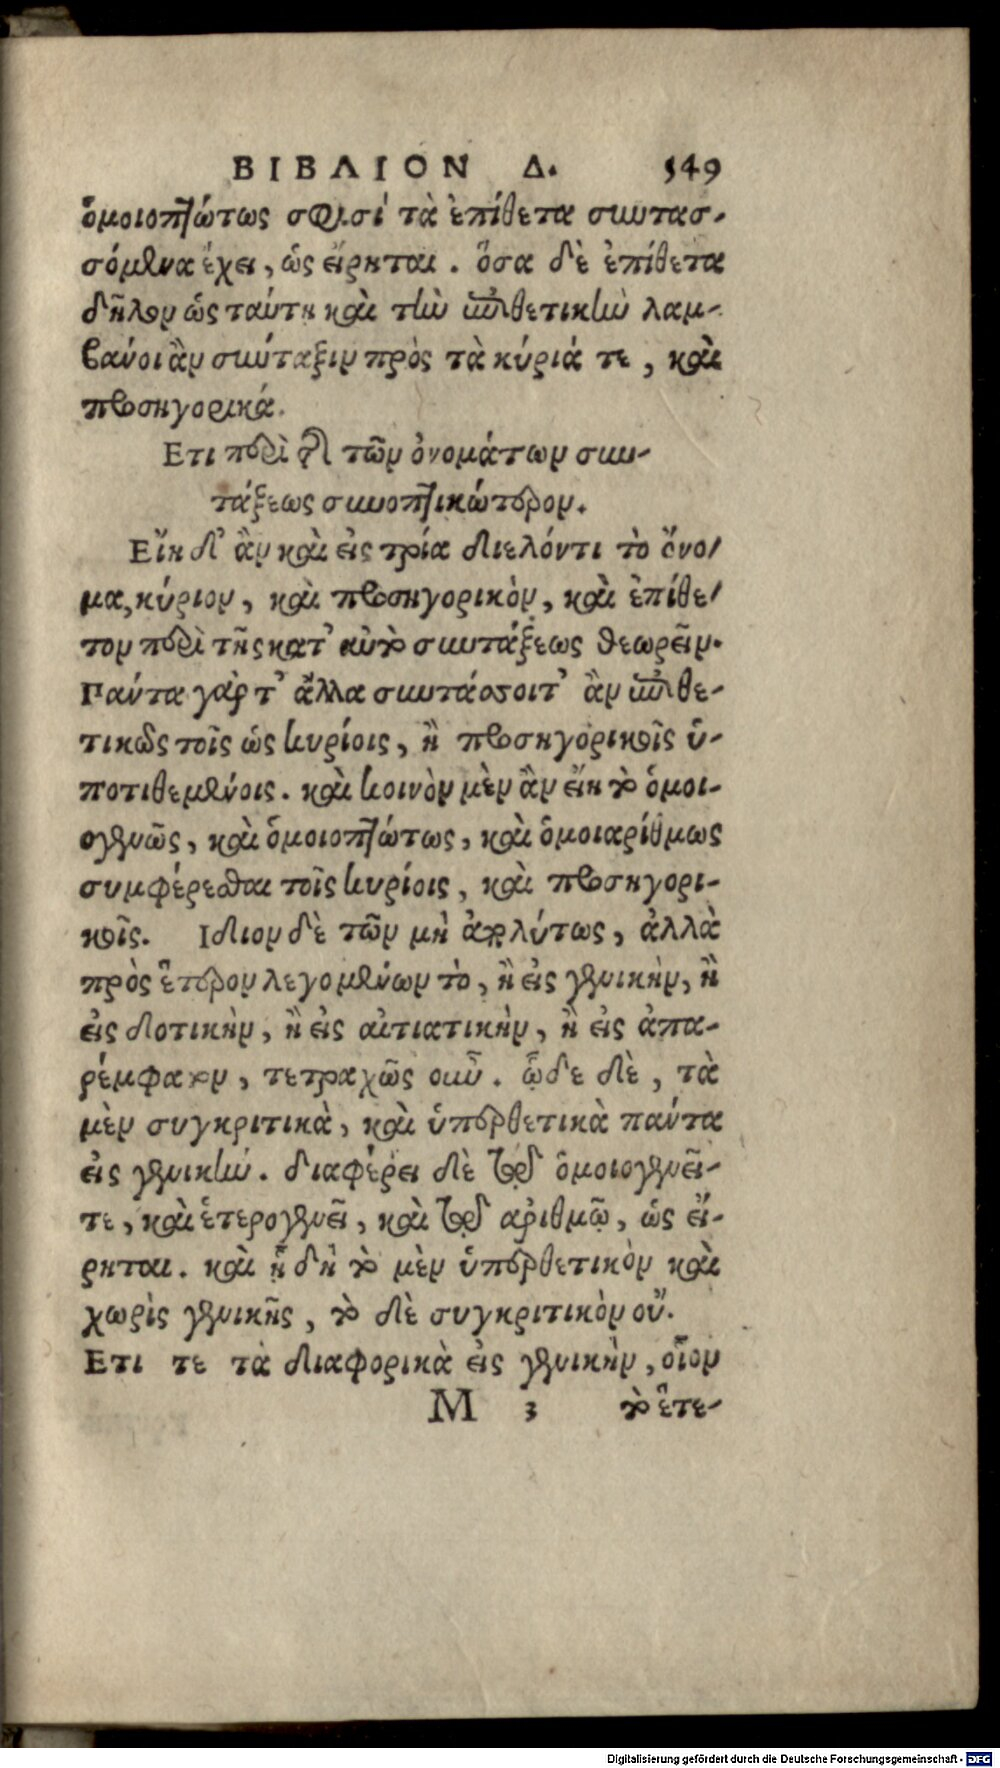 ΒΙΒΛΙΟΝ Δ. 549
ὁμοιοπτώτως σφίσι τὰ ἐπίθετα συντασ-
σόμενα ἔχει, ὡς εἴρηται. ὅσα δὲ ἐπίθετα
δῆλον ὡς ταύτῃ καὶ τὴν ἐπιθετικὴν λαμ-
βάνοι ἂν σύνταξιν πρὸς τὰ κύριά τε, καὶ
προσηγορικά.
Ετι περὶ τῆς τῶν ὀνομάτων συν-
τάξεως συνοπτικώτερον.
Εἴη δ' ἂν καὶ εἰς τρία διελόντι τὸ ὄνο-
μα, κύριον, καὶ προσηγορικὸν, καὶ ἐπίθε-
τον περὶ τῆς κατ' αὐτὸ συντάξεως θεωρεῖν.
Πάντα γὰρ τ' ἄλλα συντάσσοιτ' ἂν ἐπιθε-
τικῶς τοῖς ὡς κυρίοις, ἢ προσηγορικοῖς ὑ-
ποτιθεμένοις. καὶ κοινὸν μὲν ἂν εἴη τὸ ὁμοι-
ογενῶς, καὶ ὁμοιοπτώτως, καὶ ὁμοιαρίθμως
συμφέρεσθαι τοῖς κυρίοις, καὶ προσηγορι-
κοῖς. Ιδιον δὲ τῶν μὴ ἀπολύτως, ἀλλὰ
πρὸς ἕτερον λεγομένων τὸ, ἢ εἰς γενικὴν, ἢ
εἰς δοτικὴν, ἢ εἰς αἰτιατικὴν, ἢ εἰς ἀπα-
ρέμφατον, τετραχῶς οὖν. ὧδε δὲ, τὰ
μὲν συγκριτικὰ, καὶ ὑπερθετικὰ πάντα
εἰς γενικὴν. διαφέρει δὲ τῷ ὁμοιογενεῖ-
τε, καὶ ἑτερογενεῖ, καὶ τῷ ἀριθμῷ, ὡς εἴ-
ρηται. καὶ ᾗ δὴ τὸ μὲν ὑπερθετικὸν καὶ
χωρὶς γενικῆς, τὸ δὲ συγκριτικὸν οὔ.
Ετι τε τὰ διαφορικὰ εἰς γενικὴν, οἷον
M 3 τὸ ἕτε-
Digitalisierung gefördert durch die Deutsche Forschungsgemeinschaft - DFG